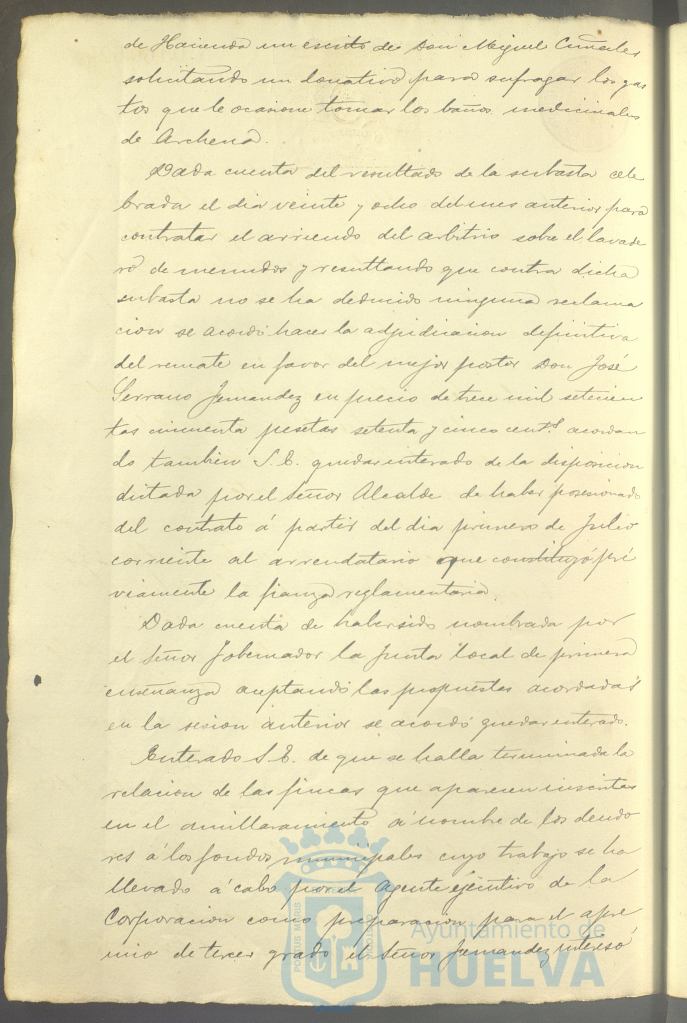 de Hacienda un escrito de Don Miguel
solicitando un donativo para sufragar los gas
tos que le ocasione tomar los baños medicinales
de Archena.
Dada cuenta del resultado de la subasta cele
brada el dia veinte y ocho del mes anterior para
contratar el arriendo del arbitrio sobre el lavade
ro de menudos y resultando que contra dicha
subasta no se ha deducido ninguna reclama
cion se acordó hacer la adjudicacion definitiva
del remate en favor del mejor postor Don José
Serrano Fernandez en precio de trece mil setecien
tas cincuenta pesetas setenta y cinco cent.s acordan
do tambien S.E. quedar enterado de la disposicion
dictada por el Señor Alcalde de haber posesionado
del contrato á partir del dia primero de Julio
corriente al arrendatario que constituyó pré
viamente la fianza reglamentaria.
Dada cuenta de haber sido nombrada por
el Señor Gobernador la Junta local de primera
enseñanza aceptando las propuestas acordadas
en la sesion anterior se acordó quedar enterado.
Enterado S.E. de que se halla terminada la
relacion de las fincas que aparecen inscritas
en el amillaramiento á nombre de los deudo
res á los fondos municipales cuyo trabajo se ha
llevado á cabo por el Agente ejecutivo de la
Corporacion como preparacion para el apre
mio de tercer grado el Señor Fernandez interesó
Ayuntamiento de
HUELVA